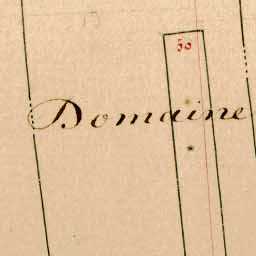 50
Domaine